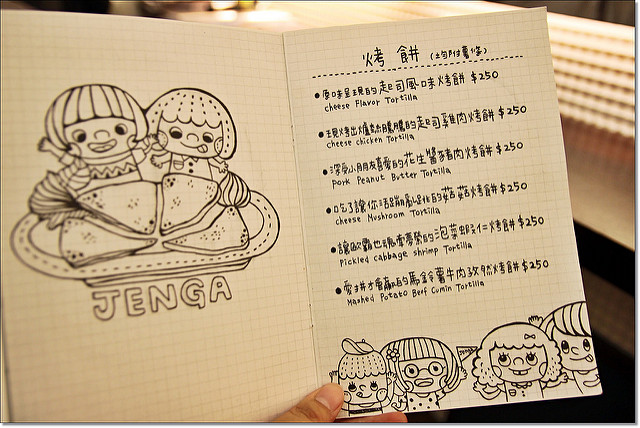 JENGA
烤餅 (均附薯條)
原味呈現的起司風味烤餅 $250
cheese Flavor Tortilla
現烤出爐熱騰騰的起司雞肉烤餅 $250
cheese chicken Tortilla
深受小朋友喜愛的花生醬豬肉烤餅 $250
Pork Peanut Butter Tortilla
吃了讓你活蹦亂跳的菇菇烤餅 $250
cheese Mushroom Tortilla
讓歐霸也瘋狂的泡菜蝦仁烤餅 $250
Pickled cabbage shrimp Tortilla
愛拼才會贏的馬鈴薯牛肉孜然烤餅 $250
Mashed Potato Beef Cumin Tortilla